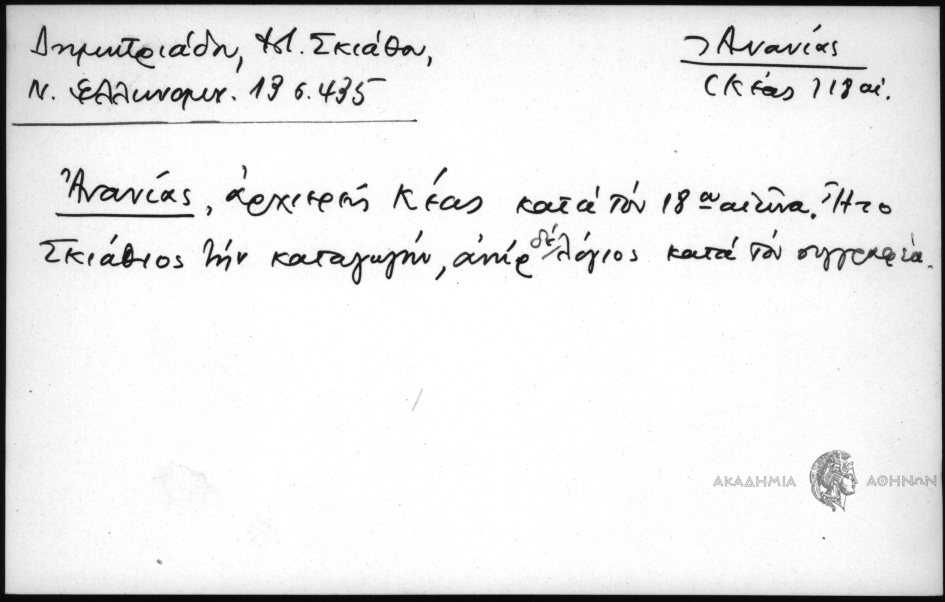 Δημητριάδη, Ἱστ. Σκιάθου,
Ν. Ἑλληνομν. 13 σ. 435
Ἀνανίας
(Κέας) 18 αἰ.
Ἀνανίας, ἀρχιερεύς Κέας κατά τόν 18ον αἰῶνα. Ἦτο
Σκιάθιος τήν καταγωγήν, ἀνήρ δέ λόγιος κατά τόν συγγραφέα.
ΑΚΑΔΗΜΙΑ ΑΘΗΝΩΝ